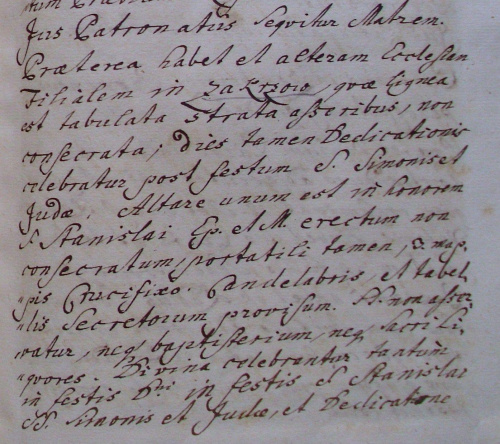 Jus Patronatûs sequitur Matrem.
Præterea habet et alteram Ecclesiam
Filialem in Zakrsow, quæ lignea
est tabulata strata asseribus, non
consecrata; dies tamen Dedicationis
celebratur post festum S. Simonis et
Judæ. Altare unum est in honorem
S. Stanislai Ep. et M. erectum non
consecratum, portatili tamen, & map,
pis Crucifixo. Candelabris, et tabel
lis Secretorum provisum. SS. non asser
vatur, neq baptisterium, neq sacri li
quores. Divina celebrantur tantum
in festis in festis S. Stanislai
SS. Simonis et Judæ, et Dedicatione